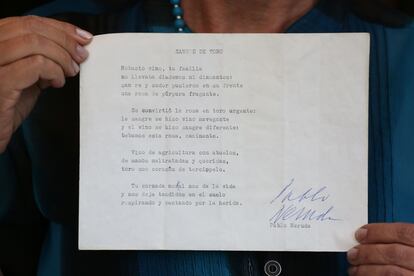 SANGRE DE TORO
Robusto vino, tu familia
no llevaba diademas ni diamantes:
sangre y sudor pusieron en su frente
una rosa de púrpura fragante.
Se convirtió la rosa en toro urgente:
la sangre se hizo vino navegante
y el vino se hizo sangre diferente:
Bebamos esta rosa, caminante.
Vino de agricultura con abuelos,
de manos maltratadas y queridas,
toro con corazón de terciopelo.
Tu cornada mortal nos da la vida
y nos deja tendidos en el suelo
respirando y cantando por la herida.
Pablo
Neruda
Pablo Neruda